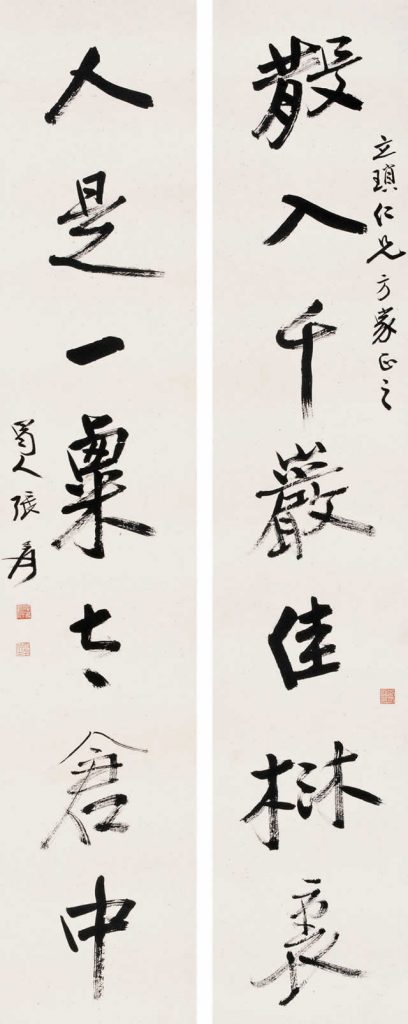 立瑣仁兄方家正之
散入千巖佳樹裏
人是一粟太倉中
蜀人張爰